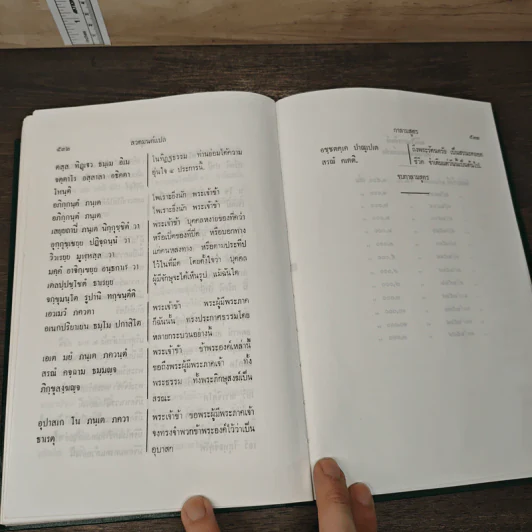 ๕๓๒
สวดมนต์แปล
ตสฺส ทิฏฺเฐว ธมฺเม อิเม
จตฺตาโร อสฺสาสา อธิคตา
โหนฺติ
อภิกฺกนฺตํ ภนฺเต
อภิกฺกนฺตํ ภนฺเต
เสยฺยถาปิ ภนฺเต นิกฺกุชฺชิตํ วา
อุกฺกุชฺเชยฺย ปฏิจฺฉนฺนํ วา
วิวเรยฺย มูฬฺหสฺส วา
มคฺคํ อาจิกฺเขยฺย อนฺธกาเร วา
เตลปฺปชฺโชตํ ธาเรยฺย
จกฺขุมนฺโต รูปานิ ทกฺขนฺตีติ
เอวเมวํ ภควตา
อเนกปริยาเยน ธมฺโม ปกาสิโต
เอเต มยํ ภนฺเต ภควนฺตํ
สรณํ คจฺฉาม ธมฺมญฺจ
ภิกฺขุสงฺฆญฺจ
อุปาสเก โน ภนฺเต ภควา
ธาเรตุ
ในทิฏฐธรรม ท่านย่อมได้ความ
อุ่นใจ ๔ ประการนี้
ไพเราะยิ่งนัก พระเจ้าข้า
ไพเราะยิ่งนัก พระเจ้าข้า
พระเจ้าข้า บุคคลหงายของที่คว่ำ
หรือเปิดของที่ปิด หรือบอกทาง
แก่คนหลงทาง หรือตามประทีป
ไว้ในที่มืด โดยตั้งใจว่า บุคคล
ผู้มีจักษุจะได้เห็นรูป แม้ฉันใด
พระเจ้าข้า พระผู้มีพระภาค
ก็ฉันนั้น ทรงประกาศธรรมโดย
หลายกระบวนอย่างนี้
พระเจ้าข้า ข้าพระองค์เหล่านี้
ขอถึงพระผู้มีพระภาคเจ้า ทั้ง
พระธรรม ทั้งพระภิกษุสงฆ์เป็น
สรณะ
พระเจ้าข้า ขอพระผู้มีพระภาคเจ้า
จงทรงจำพวกข้าพระองค์ไว้ว่าเป็น
อุบาสก
กาลามสูตร
๕๓๓
อชฺชตคฺเค ปาณุเปเต
สรณํ คเตติ.
จบกาลามสูตร